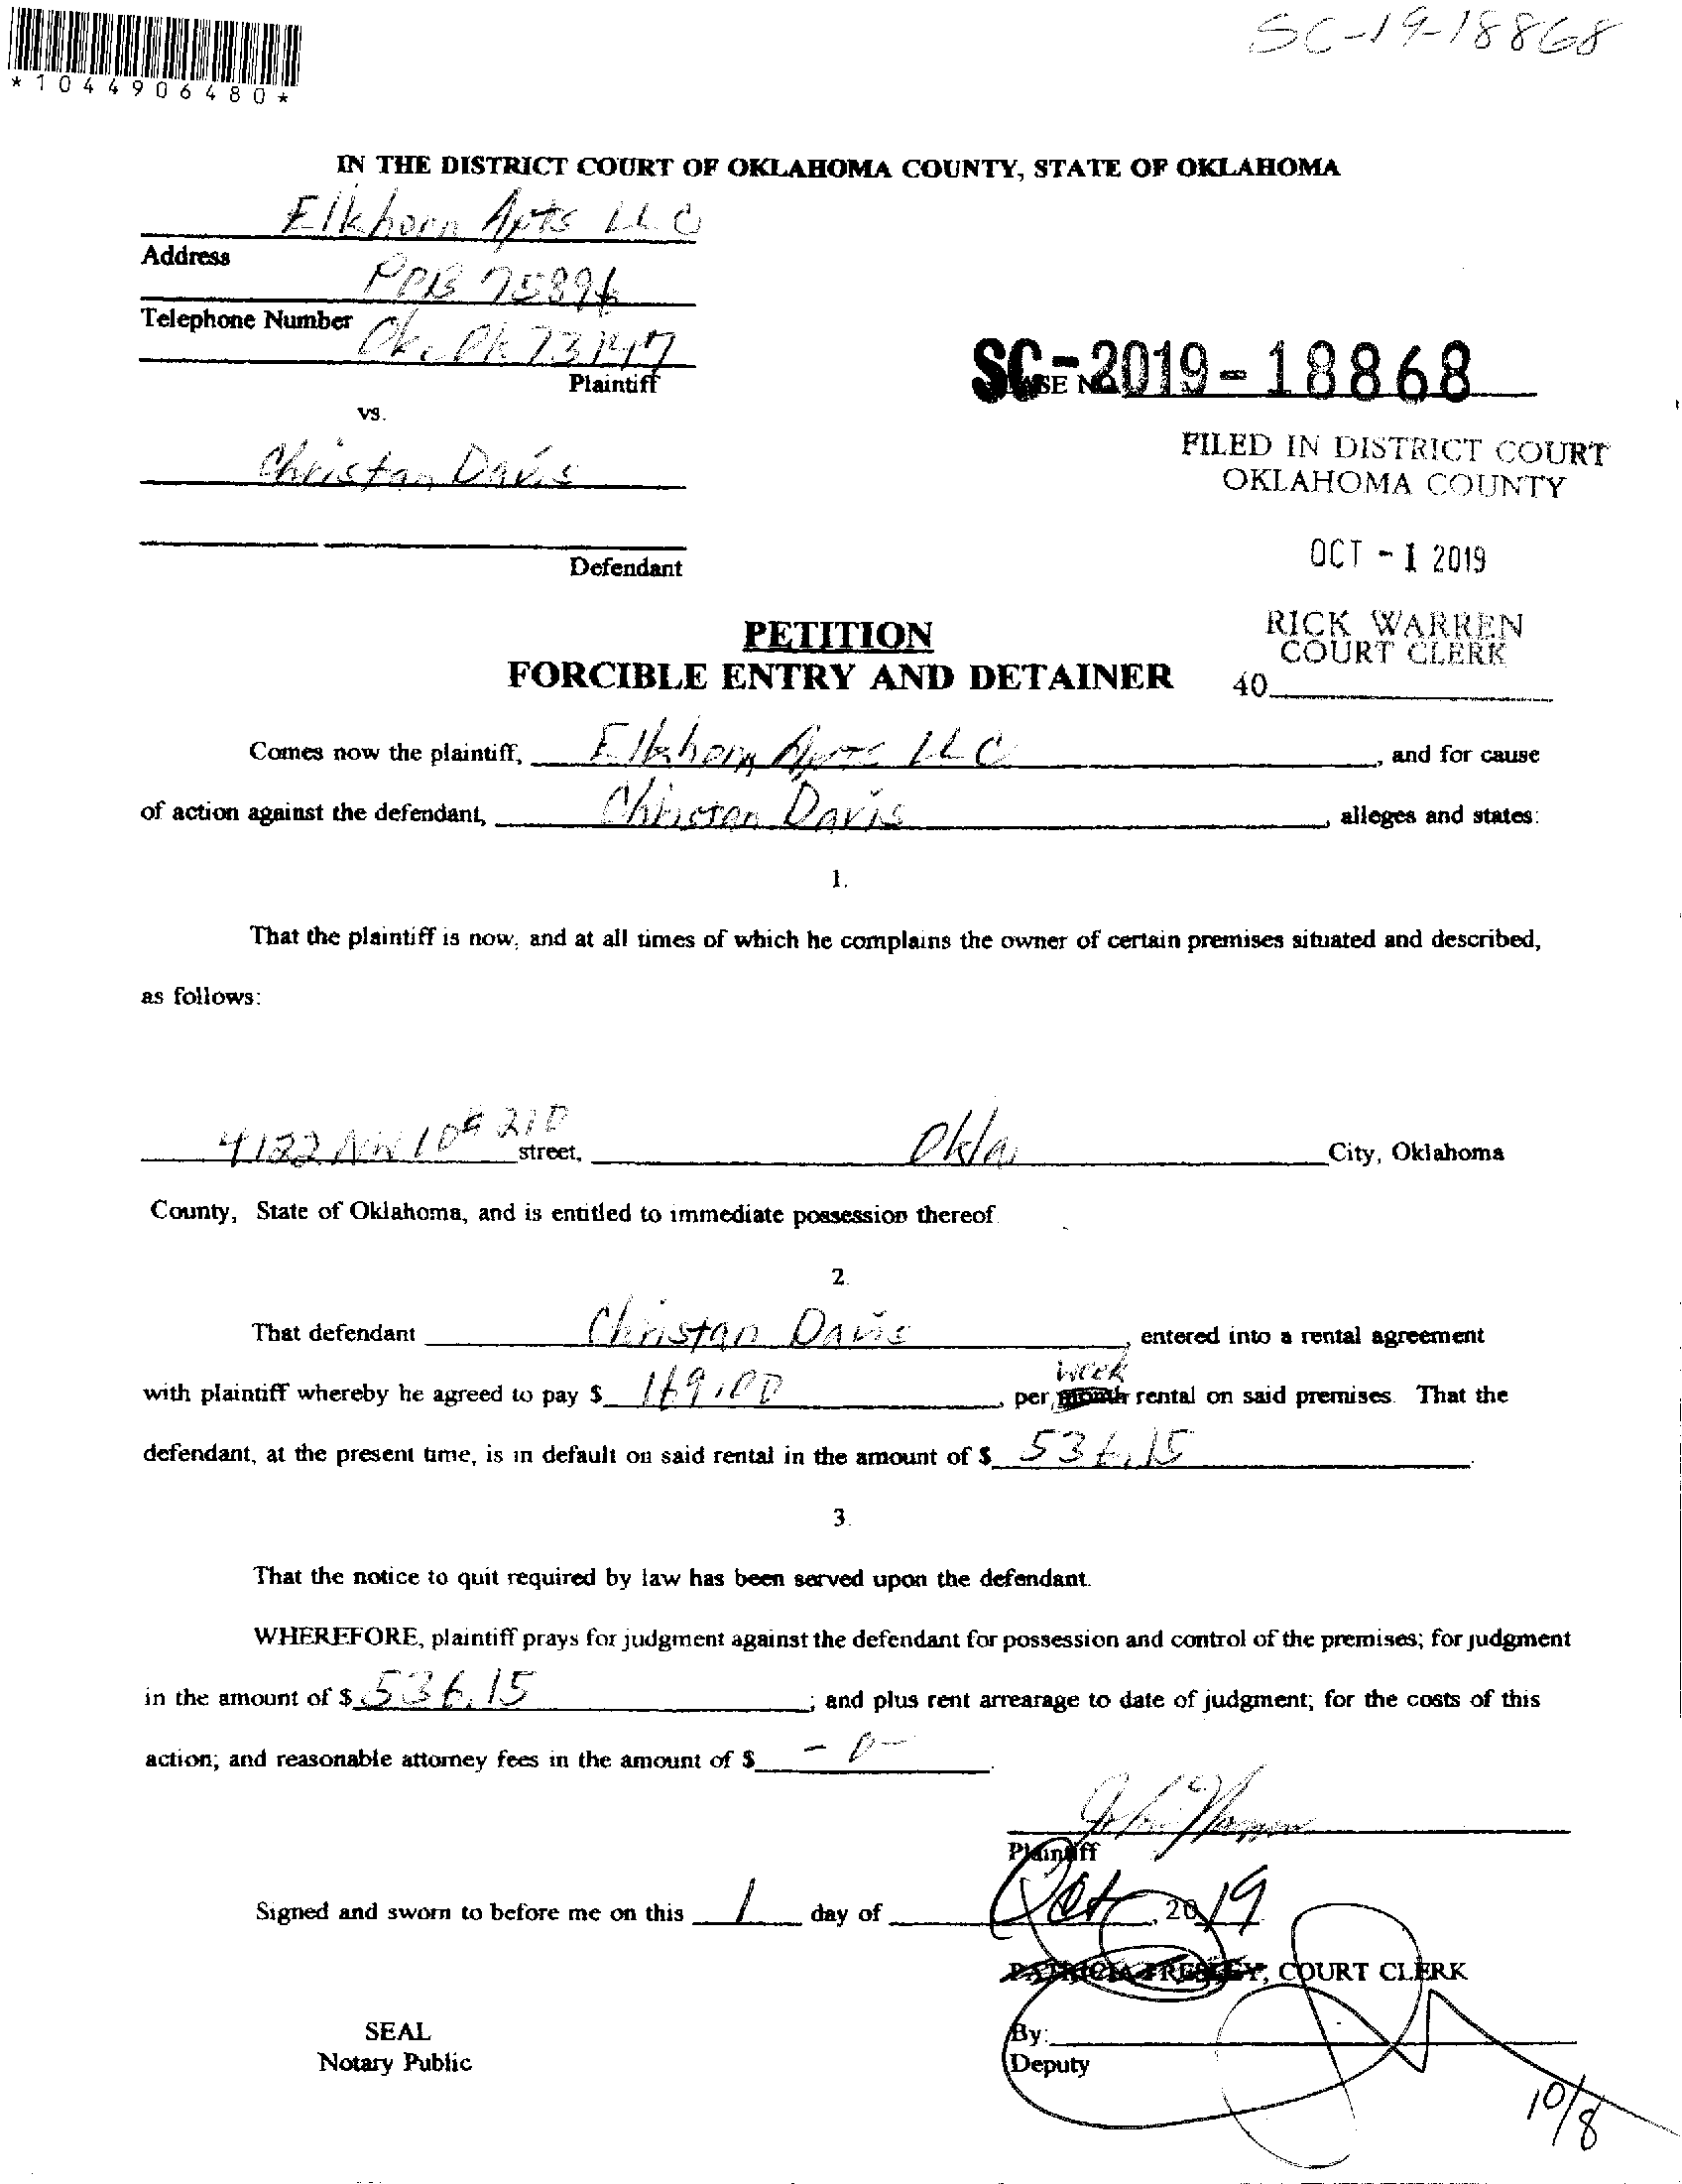 SC-19-18868
*1044906480*
IN THE DISTRICT COURT OF OKLAHOMA COUNTY, STATE OF OKLAHOMA
Elkhorn Apts LLC
Address
POB 75896
Telephone Number
Okc Ok 73147
Plaintiff
SC-2019-18868
CASE NO.
vs.
Christan Davis
FILED IN DISTRICT COURT
OKLAHOMA COUNTY
Defendant
OCT - 1 2019
RICK WARREN
COURT CLERK
40
PETITION
FORCIBLE ENTRY AND DETAINER
Comes now the plaintiff, Elkhorn Apts LLC, and for cause
of action against the defendant, Christan Davis, alleges and states:
1.
That the plaintiff is now, and at all times of which he complains the owner of certain premises situated and described,
as follows:
4122 NW 10th 210 street, Okla City, Oklahoma
County, State of Oklahoma, and is entitled to immediate possession thereof.
2.
That defendant Christan Davis, entered into a rental agreement
week
with plaintiff whereby he agreed to pay $ 169.00, per month rental on said premises. That the
defendant, at the present time, is in default on said rental in the amount of $ 536.15.
3.
That the notice to quit required by law has been served upon the defendant.
WHEREFORE, plaintiff prays for judgment against the defendant for possession and control of the premises; for judgment
in the amount of $ 536.15; and plus rent arrearage to date of judgment; for the costs of this
action; and reasonable attorney fees in the amount of $ -0-.
Plaintiff
Signed and sworn to before me on this 1 day of Oct, 2019
PATRICIA PRESLEY, COURT CLERK
SEAL
Notary Public
By:
Deputy
10/8